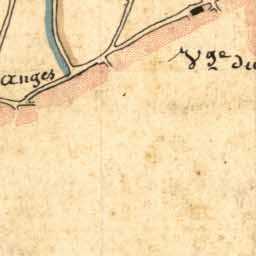 anges
Vge du